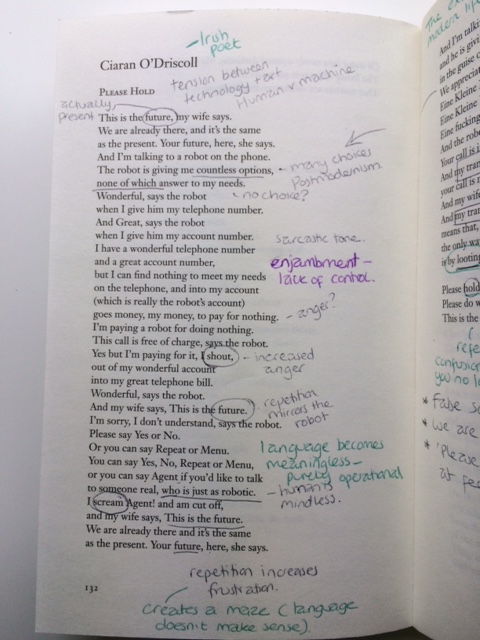 Irish
poet
Ciaran O'Driscoll
tension between
technology + art
Human v machine
PLEASE HOLD
actually
present
This is the future, my wife says.
We are already there, and it's the same
as the present. Your future, here, she says.
And I'm talking to a robot on the phone.
The robot is giving me countless options,
many choices
Postmodernism
none of which answer to my needs.
Wonderful, says the robot
no choice?
when I give him my telephone number.
And Great, says the robot
when I give him my account number.
sarcastic tone.
I have a wonderful telephone number
and a great account number,
enjambment –
lack of control.
but I can find nothing to meet my needs
on the telephone, and into my account
(which is really the robot's account)
goes money, my money, to pay for nothing.
– anger?
I'm paying a robot for doing nothing.
This call is free of charge, says the robot.
Yes but I'm paying for it, I shout,
– increased
anger
out of my wonderful account
into my great telephone bill.
Wonderful, says the robot.
And my wife says, This is the future.
repetition
mirrors the
robot
I'm sorry, I don't understand, says the robot.
Please say Yes or No.
Or you can say Repeat or Menu.
language becomes
meaningless –
purely operational
You can say Yes, No, Repeat or Menu,
or you can say Agent if you'd like to talk
to someone real, who is just as robotic.
– humans
mindless.
I scream Agent! and am cut off,
and my wife says, This is the future.
We are already there and it's the same
as the present. Your future, here, she says.
132
repetition increases
frustration.
creates a maze (language
doesn't make sense)
modern life
And I'm talki
and he is givi
in the guise o
We appreciat
Eine Kleine
Eine Kleine
Eine fucking
And the robo
Your call is i
And my tran
your call is
And my wife
And my tran
means that,
the only wa
is by looting
Please hold
Please do w
This is the
refe
confusion
you no l
* False s
* we are
* 'Please
at pe